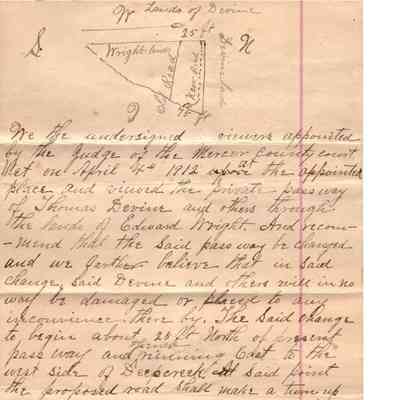 W Lands of Devine
25 ft
S
N
Wright lands
Old Road
New Road
We the undersigned viewers appointed
by the Judge of the Mercer County court
Met on April 4th 1912 above at the appointed
place and viewed the private pass way
of Thomas Devine and others through
the lands of Edward Wright. And recom-
-mend that the said pass way be changed
and we farther believe that in said
change said Devine and others will in no
way be damaged or placed to any
inconvinence there by. The said change
to begin about 25 ft North of present
pass way and running East to the
west side of Deescreek. At said point
the proposed road shall make a turn up